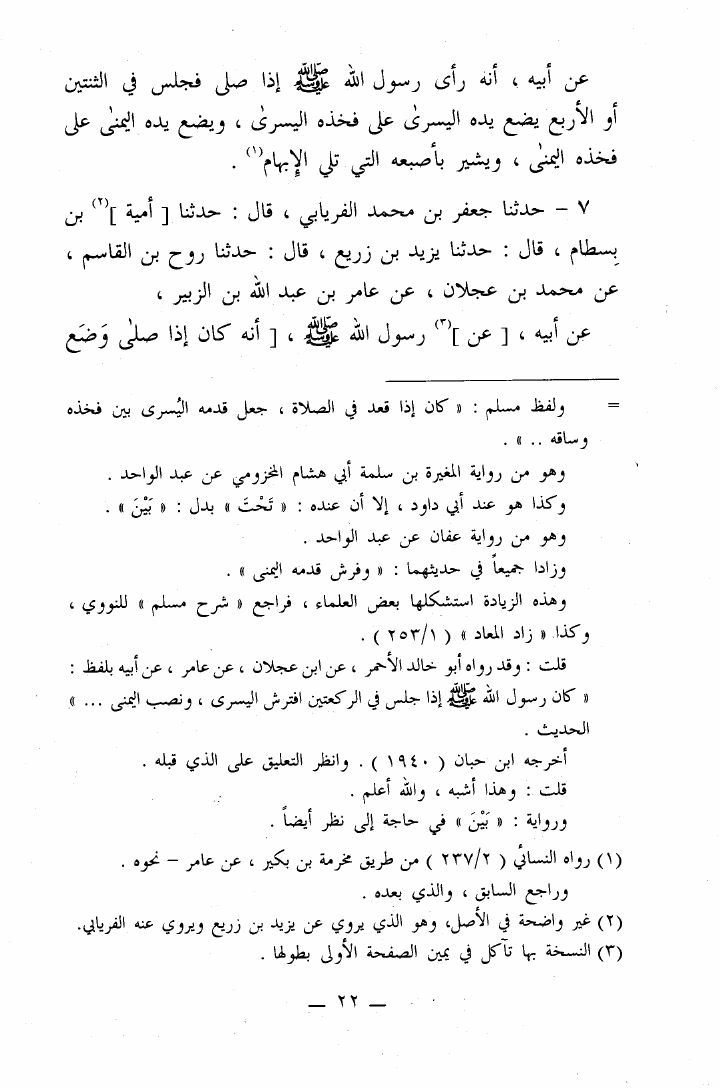 عن أبيه ، أنه رأى رسول الله ﷺ إذا صلى فجلس في الثنتين
أو الأربع يضع يده اليسرىٰ على فخذه اليسرىٰ ، ويضع يده اليمنىٰ على
فخذه اليمنىٰ ، ويشير بأصبعه التي تلي الإبهام(١) .
٧ – حدثنا جعفر بن محمد الفريابي ، قال : حدثنا [ أمية ](٢) بن
بِسطام ، قال : حدثنا يزيد بن زريع ، قال : حدثنا روح بن القاسم ،
عن محمد بن عجلان ، عن عامر بن عبد الله بن الزبير ،
عن أبيه ، [ عن ](٣) رسول الله ﷺ ، [ أنه كان إذا صلىٰ وَضَع
= ولفظ مسلم : « كان إذا قعد في الصلاة ، جعل قدمه اليُسرى بين فخذه
وساقه .. » .
وهو من رواية المغيرة بن سلمة أبي هشام المخزومي عن عبد الواحد .
وكذا هو عند أبي داود ، إلا أن عنده : « تَحْتَ » بدل : « بَيْنَ » .
وهو من رواية عفان عن عبد الواحد .
وزادا جميعاً في حديثهما : « وفرش قدمه اليمنى » .
وهذه الزيادة استشكلها بعض العلماء ، فراجع « شرح مسلم » للنووي ،
وكذا « زاد المعاد » ( ٢٥٣/١ ) .
قلت : وقد رواه أبو خالد الأحمر ، عن ابن عجلان ، عن عامر ، عن أبيه بلفظ :
« كان رسول الله ﷺ إذا جلس في الركعتين افترش اليسرى ، ونصب اليمنى ... »
الحديث .
أخرجه ابن حبان ( ١٩٤٠ ) . وانظر التعليق على الذي قبله .
قلت : وهذا أشبه ، والله أعلم .
ورواية : « بَيْنَ » في حاجة إلى نظر أيضاً .
(١) رواه النسائي ( ٢٣٧/٢ ) من طريق مخرمة بن بكير ، عن عامر – نحوه .
وراجع السابق ، والذي بعده .
(٢) غير واضحة في الأصل، وهو الذي يروي عن يزيد بن زريع ويروي عنه الفريابي.
(٣) النسخة بها تآكل في يمين الصفحة الأولى بطولها .
— ٢٢ —